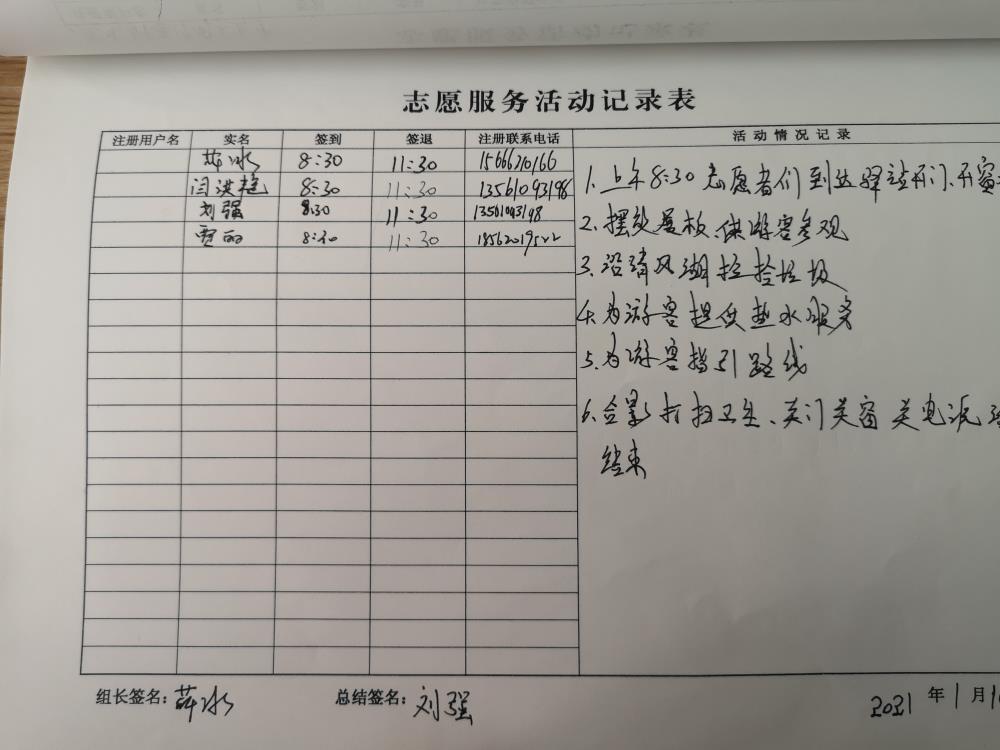 志愿服务活动记录表
注册用户名 实名 签到 签退 注册联系电话 活动情况记录
8:30 11:30 15666210166
闫洪艳 8:30 11:30 13561093198
刘强 8:30 11:30 13561093198
贾丽 8:30 11:30
1.上午8:30志愿者们到达驿站开门、开窗
2.摆放展板,供游客参观
3.沿清风湖捡拾垃圾
4.为游客提供热水服务
5.为游客指引路线
6.合影打扫卫生、关门关窗关电源
结束
组长签名: 总结签名:刘强
2021年1月